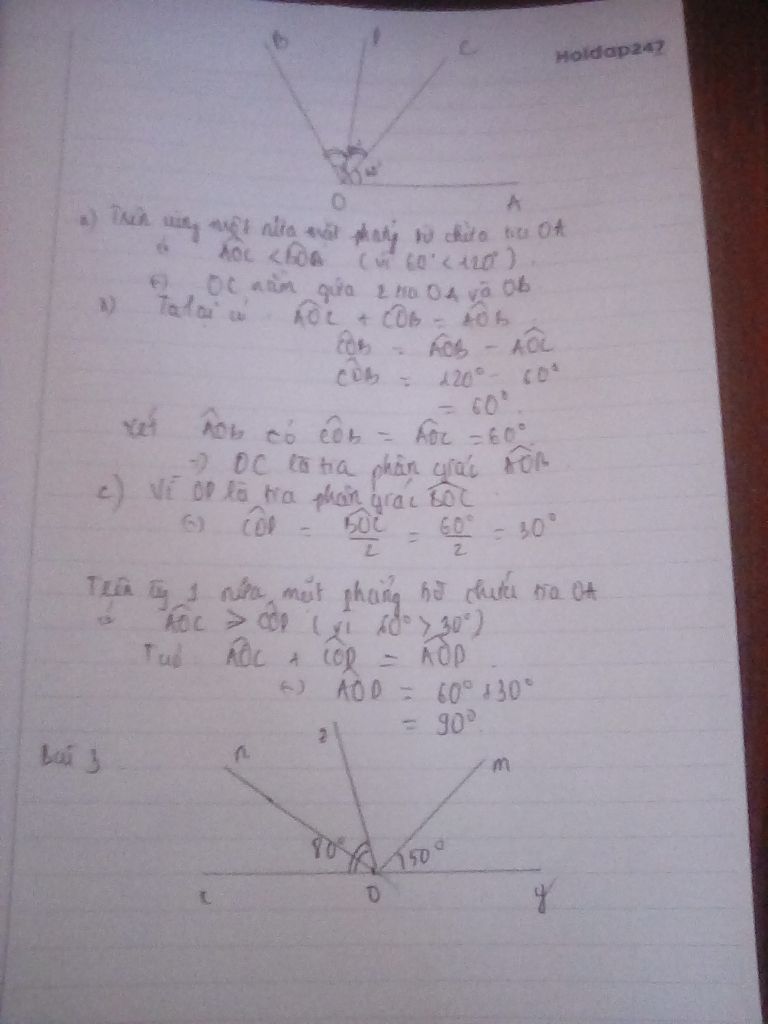 B D C
Hoidap247
60°
O A
a) Trên cùng một nửa mặt phẳng bờ chứa tia OA
có AÔC < BÔA (vì 60° < 120°)
OC nằm giữa 2 tia OA và OB
Ta lại có AÔC + CÔB = AÔB
CÔB = AÔB - AÔC
CÔB = 120° - 60°
= 60°
Xét AÔB có CÔB = AÔC = 60°
=> OC là tia phân giác AÔB
c) Vì OD là tia phân giác BÔC
CÔD = BÔC/2 = 60°/2 = 30°
Trên 1 nửa mặt phẳng bờ chứa tia OA
có AÔC > CÔD (vì 60° > 30°)
AÔC + CÔD = AÔD
AÔD = 60° + 30°
= 90°
Bài 3
n z m
80° 50°
x O y